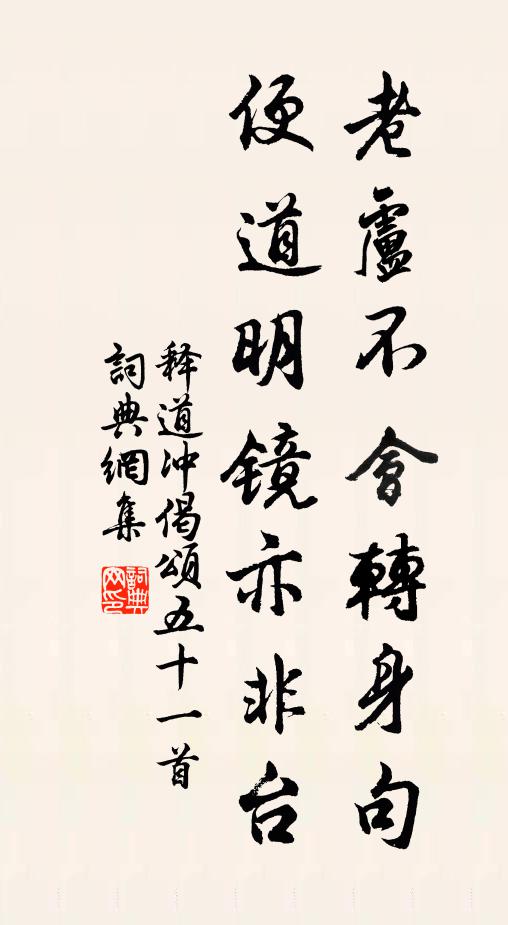 老盧不會轉身句
便道明鏡亦非台
释道沖偈頌五十一首
詞典網集
詞典网印